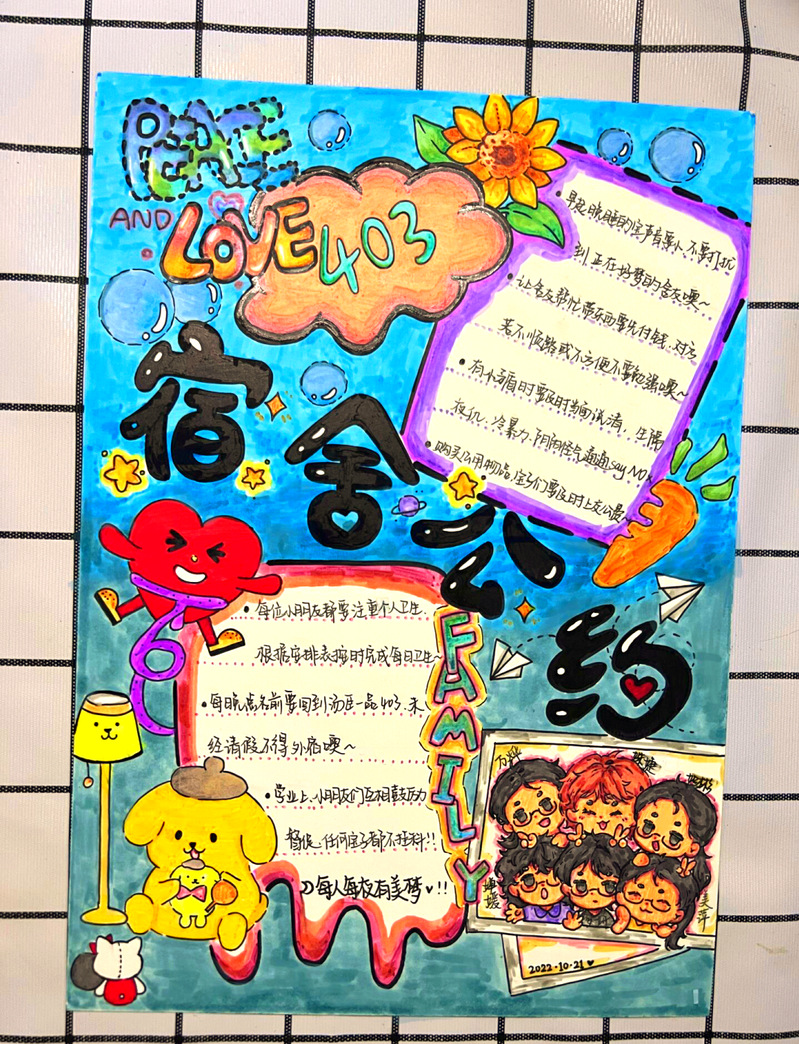 PEACE
AND LOVE 403
宿舍公约
早起晚睡的宝声音要小,不要打扰
到正在做梦的舍友噢~
让舍友帮忙带东西要先付钱.对方
若不顺路或不方便不要勉强噢~
有矛盾时要及时当面说清.生闷
夜饥.冷暴力.阴阳怪气通通say NO
购买公用物品,宝子们要及时上交公费~
6
每位小朋友都要注重个人卫生.
根据安排表按时完成每日卫生~
每晚点名前要回到汤臣一品403.未
经请假不得外宿噢~
学业上,小朋友们互相鼓励
督促.任何宝子都不挂科!!
每人每夜有美梦♥!!
FAMILY
美萍
2022·10·21 ♥